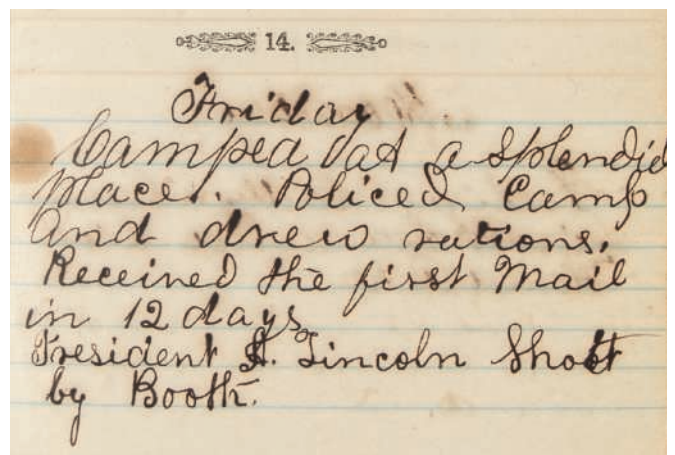 14.
Friday
Camped at a splendid
place. Policed Camp
and drew rations.
Received the first Mail
in 12 days
President A. Lincoln Shot
by Booth.